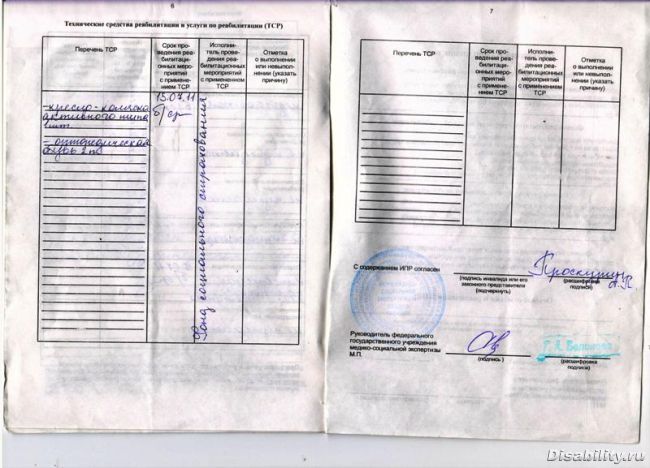 6
Технические средства реабилитации и услуги по реабилитации (ТСР)
Перечень ТСР
Срок про-
ведения реа-
билитаци-
онных меро-
приятий
с примене-
нием ТСР
Исполни-
тель прове-
дения реа-
билитационных
мероприятий
с применением
ТСР
Отметка
о выполнении
или невыпол-
нении (указать
причину)
- кресло-коляска
активного типа
1 шт.
- ортопедическая
обувь 2 п
13.07.11
б/ср
Фонд социального страхования
7
Перечень ТСР
Срок про-
ведения реа-
билитаци-
онных меро-
приятий
с примене-
нием ТСР
Исполни-
тель прове-
дения реа-
билитационных
мероприятий
с применением
ТСР
Отметка
о выполнении
или невыпол-
нении (указать
причину)
С содержанием ИПР согласен
(подпись инвалида или его
законного представителя
(подчеркнуть)
(расшифровка
подписи)
Руководитель федерального
государственного учреждения
медико-социальной экспертизы
М.П.
(подпись)
(расшифровка
подписи)
Disability.ru